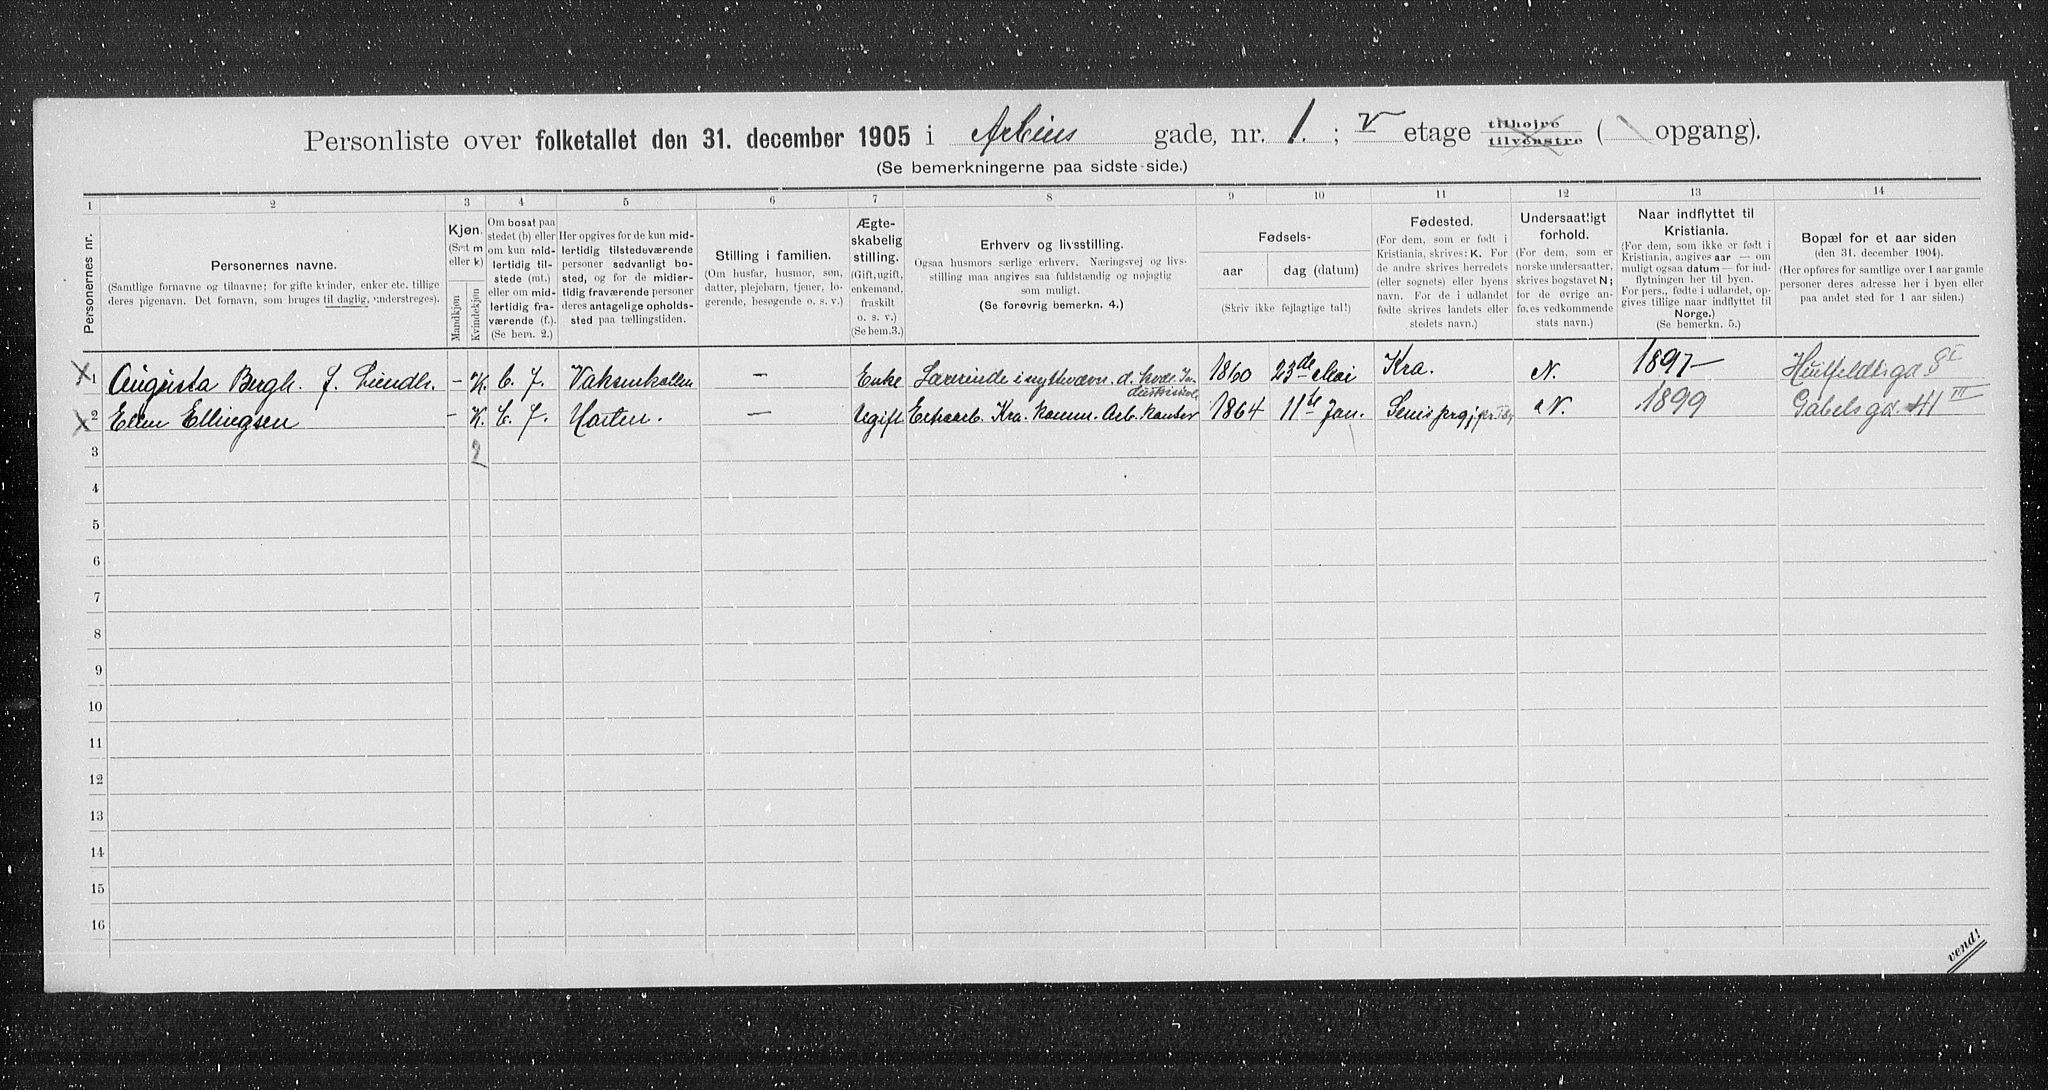 Personliste over folketallet den 31. december 1905 i Arbins gade, nr. 1. ; V etage tilhøjre tilvenstre ( \ opgang).
(Se bemerkningerne paa sidste-side.)
1 2 3 4 5 6 7 8 9 10 11 12 13 14
Personernes nr.
Personernes navne.
(Samtlige fornavne og tilnavne; for gifte kvinder, enker etc. tillige
deres pigenavn. Det fornavn, som bruges til daglig, understreges).
Kjøn.
(Sæt m
eller k)
Mandkjøn
Kvindekjøn
Om bosat paa
stedet (b) eller
om kun midlertidig til-
stede (mt.)
eller om mid-
lertidig fra-
værende (f.).
(Se bem. 2.)
Her opgives for de kun mid-
lertidig tilstedeværende
personer sedvanligt bo-
sted, og for de midler-
tidig fraværende personer
deres antagelige opholds-
sted paa tællingstiden.
Stilling i familien.
(Om husfar, husmor, søn,
datter, plejebarn, tjener, lo-
gerende, besøgende o. s. v.)
Ægte-
skabelig
stilling.
(Gift, ugift,
enkemand,
fraskilt
o. s. v.)
(Se bem.3.)
Erhverv og livsstilling.
Ogsaa husmors særlige erhverv. Næringsvej og livs-
stilling maa angives saa fuldstændig og nøjagtig
som muligt.
(Se forøvrig bemerkn. 4.)
Fødsels-
aar
dag (datum)
(Skriv ikke fejlagtige tal!)
Fødested.
(For dem, som er født i
Kristiania, skrives: K. For
de andre skrives herredets
(eller sognets) eller byens
navn. For de i udlandet
fødte skrives landets eller
stedets navn.)
Undersaatligt
forhold.
(For dem, som er
norske undersaatter,
skrives bogstavet N;
for de øvrige an-
føres vedkommende
stats navn.)
Naar indflyttet til
Kristiania.
(For dem, som ikke er født i
Kristiania, angives aar — om
muligt ogsaa datum — for ind-
flytningen her til byen.
For pers., fødte i udlandet, op-
gives tillige naar indflyttet til
Norge.)
(Se bemerkn. 5.)
Bopæl for et aar siden
(den 31. december 1904).
(Her opføres for samtlige over 1 aar gamle
personer deres adresse her i byen eller
paa andet sted for 1 aar siden.)
X 1 Augusta Bergh. f. Lundh. — K. b. f. Voksenkollen — Enke Lærerinde i nythvævn. d. kvdl. In- dustriskole 1860 23de Mai Kra. N. 1897— Huitfeldtsgd 8 I
X 2 Ellen Ellingsen — K. b. f. Horten. — Ugift Extraarb. Kra. komm. Arb. kontor 1864 11te Jan. N. 1899 Gabelsgd. 41 III
3 2
4
5
6
7
8
9
10
11
12
13
14
15
16
vend!